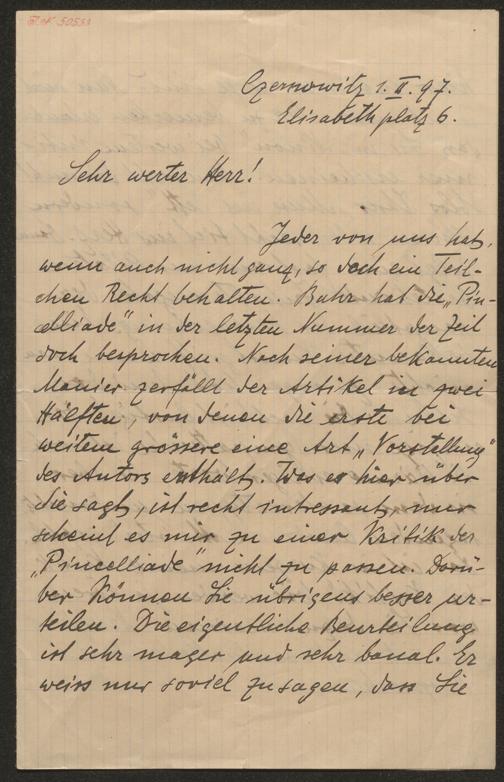 Czernowitz 1. II. 97.
Elisabethplatz 6.
Sehr werter Herr!
Jeder von uns hat,
wenn auch nicht ganz, so doch ein Teil-
chen Recht behalten. Bahr hat die „Pin-
celliade" in der letzten Nummer der Zeit
doch besprochen. Nach seiner bekannten
Manier zerfällt der Artikel in zwei
Hälften, von denen die erste bei
weitem grössere eine Art „Vorstellung"
des Autors enthält. Was er hier über
Sie sagt, ist recht intressant, nur
scheint es mir zu einer Kritik der
„Pincelliade" nicht zu passen. Darü-
ber können Sie übrigens besser ur-
teilen. Die eigentliche Beurteilung
ist sehr mager und sehr banal. Er
weiss nur soviel zu sagen, dass Sie